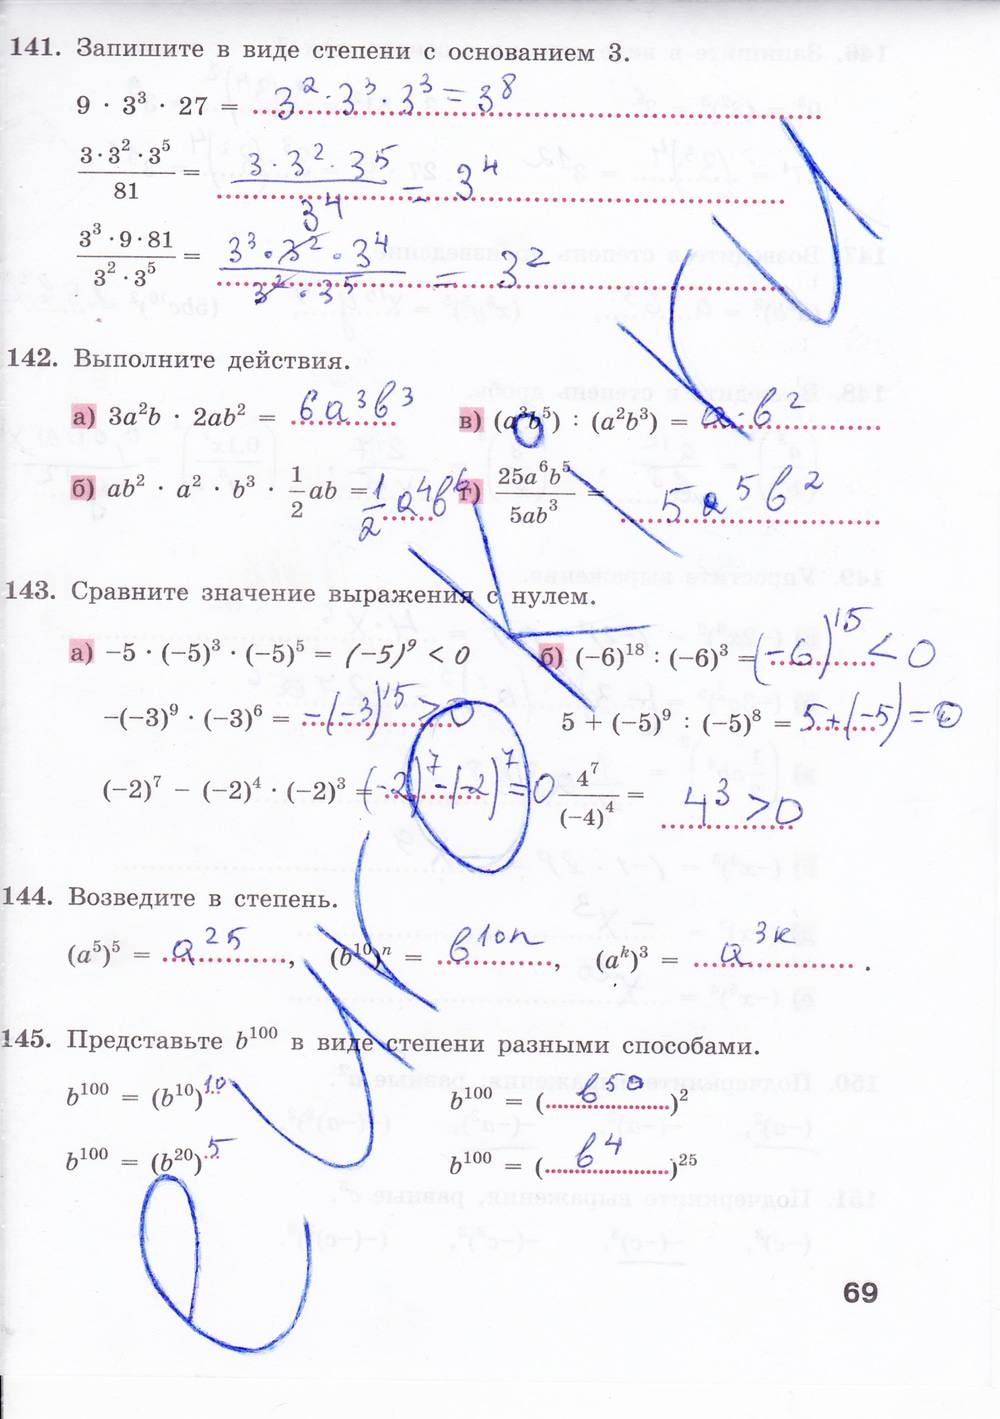 141. Запишите в виде степени с основанием 3.
9 · 3³ · 27 = 3² · 3³ · 3³ = 3⁸
3 · 3² · 3⁵ / 81 = 3 · 3² · 3⁵ / 3⁴ = 3⁴
3³ · 9 · 81 / 3² · 3⁵ = 3³ · 3² · 3⁴ / 3² · 3⁵ = 3²
142. Выполните действия.
а) 3a²b · 2ab² = 6a³b³ в) (a³b⁵) : (a²b³) = a·b²
б) ab² · a² · b³ · 1/2 ab = 1/2 a⁴b⁶ г) 25a⁶b⁵ / 5ab³ = 5a⁵b²
143. Сравните значение выражения с нулем.
а) −5 · (−5)³ · (−5)⁵ = (−5)⁹ < 0 б) (−6)¹⁸ : (−6)³ = (−6)¹⁵ < 0
−(−3)⁹ · (−3)⁶ = −(−3)¹⁵ > 0 5 + (−5)⁹ : (−5)⁸ = 5+(−5) = 0
(−2)⁷ − (−2)⁴ · (−2)³ = (−2)⁷ − (−2)⁷ = 0 4⁷ / (−4)⁴ = 4³ > 0
144. Возведите в степень.
(a⁵)⁵ = a²⁵, (b¹⁰)ⁿ = b¹⁰ⁿ, (aᵏ)³ = a³ᵏ.
145. Представьте b¹⁰⁰ в виде степени разными способами.
b¹⁰⁰ = (b¹⁰)¹⁰ b¹⁰⁰ = (b⁵⁰)²
b¹⁰⁰ = (b²⁰)⁵ b¹⁰⁰ = (b⁴)²⁵
69